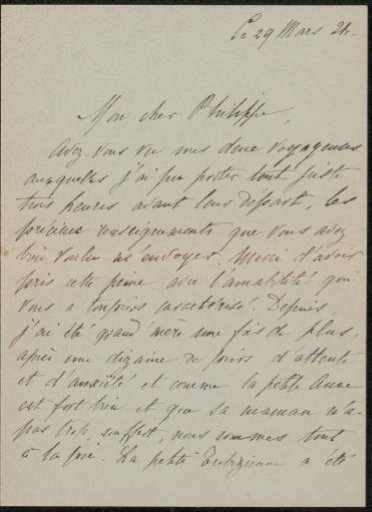 Le 29 Mars 24.
Mon cher Philippe,
Avez-vous vu mes deux voyageuses
auxquelles j'ai pu porter tout juste
trois heures avant leur départ, les
précieux renseignements que vous avez
bien voulu m'envoyer. Merci d'avoir
pris cette peine avec l'amabilité qui
vous a toujours caractérisé. Depuis
j'ai été grand'mère une fois de plus,
après une dizaine de jours d'attente
et d'anxiété et comme la petite Anne
est fort bien et que sa maman n'a
pas trop souffert, nous sommes tout
à la joie. La petite a été